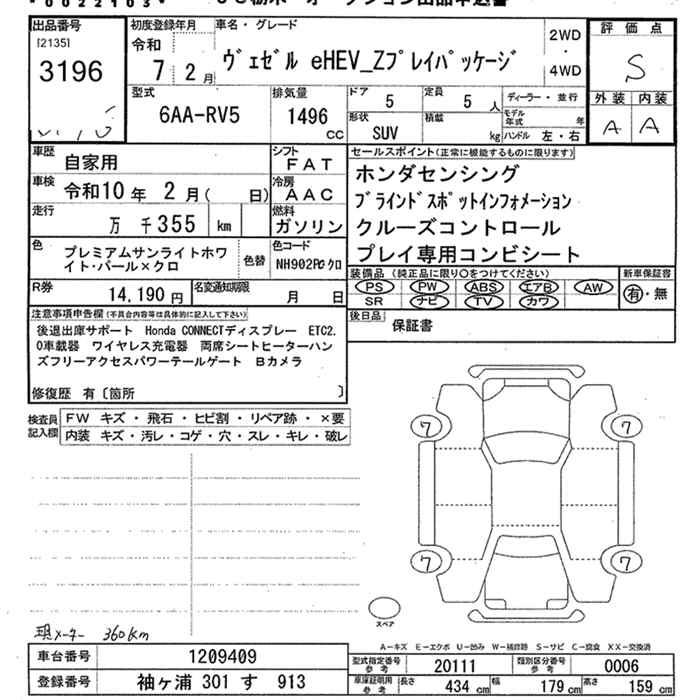 *0022103*
出品番号
[2135]
3196
初度登録年月
令和
7 2月
車名・グレード
ヴェゼル eHEV_Zプレイパッケージ
2WD
・
4WD
評価点
S
外装 内装
A A
型式
6AA-RV5
排気量
1496
cc
ドア
5
定員
5 人
形状
SUV
積載
kg
ディーラー・並行
モデル年式 年
ハンドル 左・右
車歴 自家用
シフト
FAT
車検 令和10年 2月( 日)
冷房
AAC
走行 万 千355 km
燃料
ガソリン
色 プレミアムサンライトホワイト・パール×クロ
色替
色コード
R券 14,190円
名変通知期限
月 日
セールスポイント(正常に機能するものに限ります)
ホンダセンシング
ブラインドスポットインフォメーション
クルーズコントロール
プレイ専用コンビシート
装備品(純正品に限り○をつけてください)
PS PW ABS エアB AW
SR ナビ TV カワ
新車保証書
有・無
後日品 保証書
注意事項申告欄(不具合内容等は具体的に記入して下さい)
後退出庫サポート Honda CONNECTディスプレー ETC2.
0車載器 ワイヤレス充電器 両席シートヒーターハン
ズフリーアクセスパワーテールゲート Bカメラ
修復歴 有〔箇所 〕
検査員記入欄
FW キズ・飛石・ヒビ割・リペア跡・×要
内装 キズ・汚レ・コゲ・穴・スレ・キレ・破レ
7 7
7 7
スペア
現メーター 360km
A-キズ E-エクボ U-凹み W-補修跡 S-サビ C-腐食 XX-交換済
車台番号 1209409
登録番号 袖ヶ浦 301 す 913
型式指定番号
参考
20111
類別区分番号
参考
0006
車庫証明用
参考
長さ 434 cm 幅 179 cm 高さ 159 cm